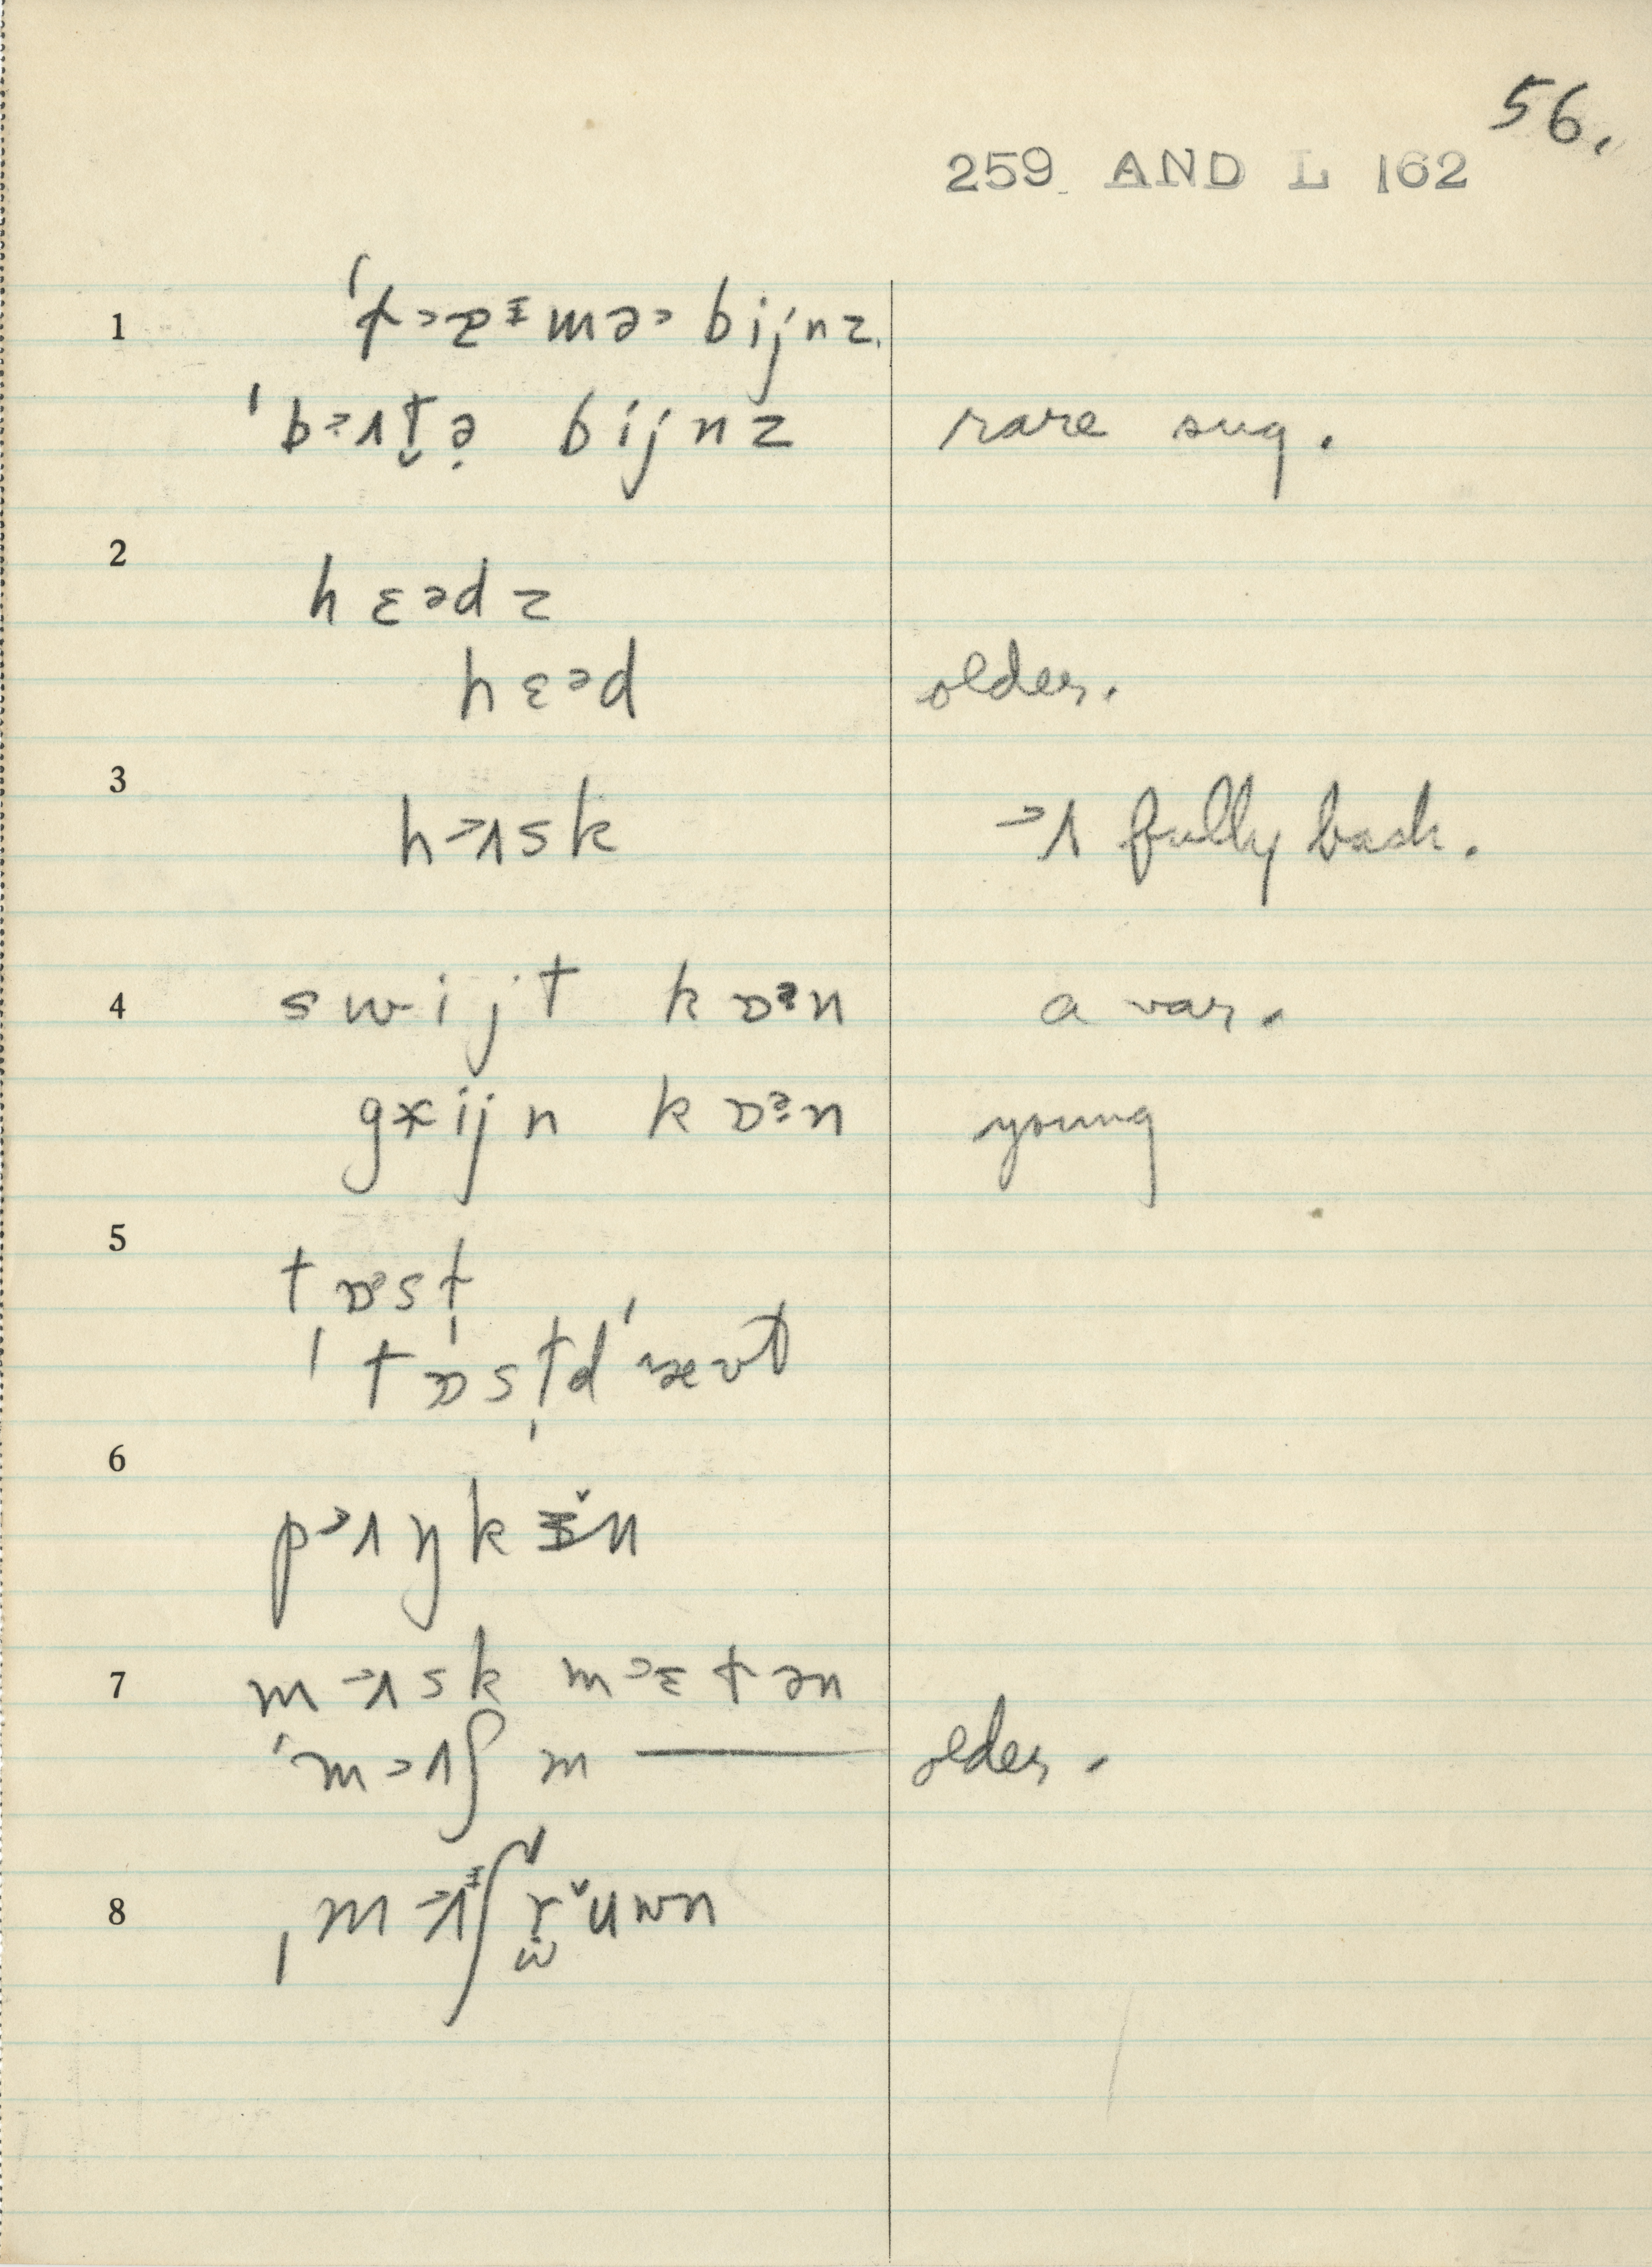 56.
259 AND L 162
1 ˈt˃ɐᵻmə˃ bijnz.
ˈb˃ʌt̬ə̣ bijnz rare sug.
2 hɛᵊdz
hɛᵊd older.
3 h˃ʌsk ˃ʌ fully back.
4 swijt kɒᵊn a var.
gɤijn kɒᵊn young
5 tɒᵊst̩
6 p˃ʌŋkɪ̆n
7 m˃ʌsk m˃ɛtən
ˈm˃ʌʃ m — older.
8 ˌm˃ʌᵻʃ rŭuwn